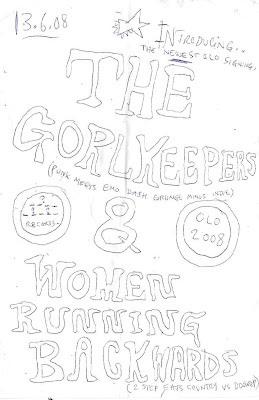 13.6.08
INTRODUCING..
THE NEWEST OLO SIGNING.
THE
GORLKEEPERS
(PUNK MEETS EMO DASH GRUNGE MINUS INDIE)
?
RECORDS
&
OLO
2008
WOMEN
RUNNING
BACKWARDS
(2 STEP EATS COUNTRY VS DOOWOP)